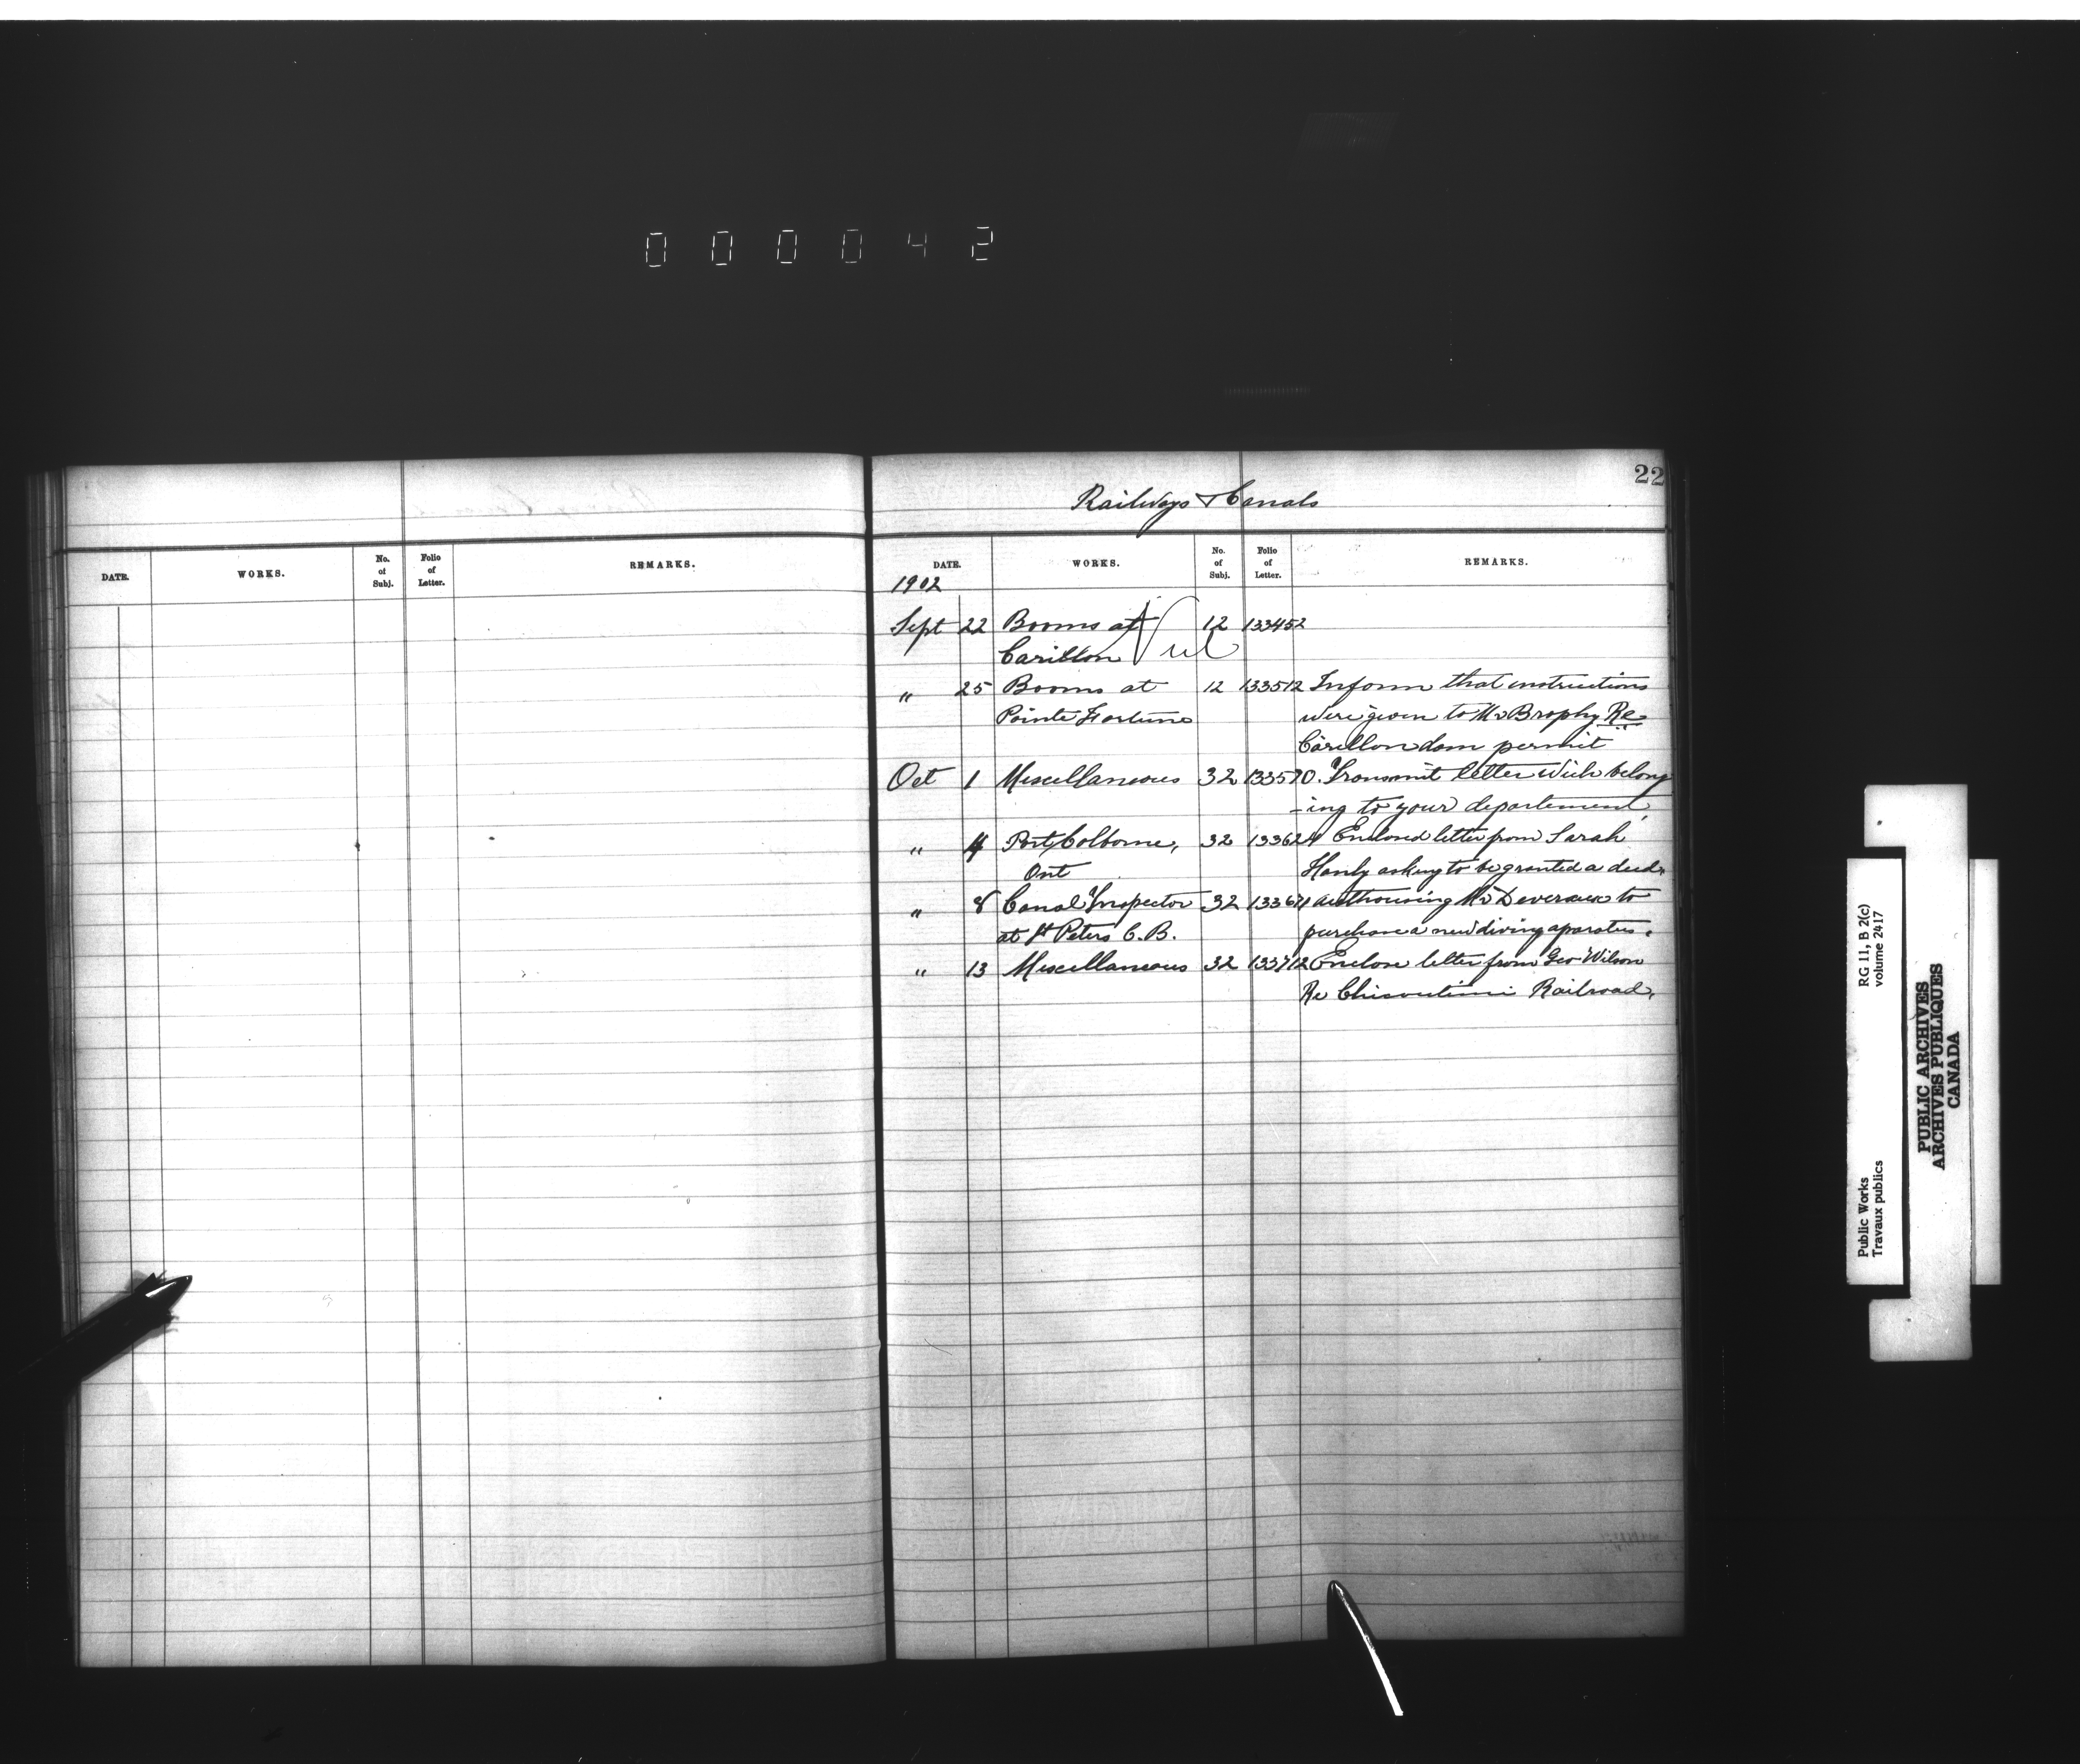 000042
22
Railways & Canals
DATE. WORKS. No. of Subj. Folio of Letter. REMARKS.
DATE. WORKS. No. of Subj. Folio of Letter. REMARKS.
1902
Sept 22 Booms at 12 133452
Carillon
" 25 Booms at 12 133512 Inform that instructions
Pointe Fortune were given to Mr Brophy Re
Carillon dam permit
Oct 1 Miscellaneous 32 133570. Transmit letter wich belong
-ing to your departement,
" 4 Port Colborne, 32 133624 Enclosed letter from Sarah
Ont Hanly asking to be granted a deed.
" 8 Canal Inspector 32 133671 authorising Mr Deveraux to
at St Peters C.B. purchase a new diving aparatus.
" 13 Miscellaneous 32 133712 Enclose letter from Geo Wilson
Re Chicoutimi Railroad,
RG 11, B 2(c)
volume 2417
Public Works
Travaux publics
PUBLIC ARCHIVES
ARCHIVES PUBLIQUES
CANADA